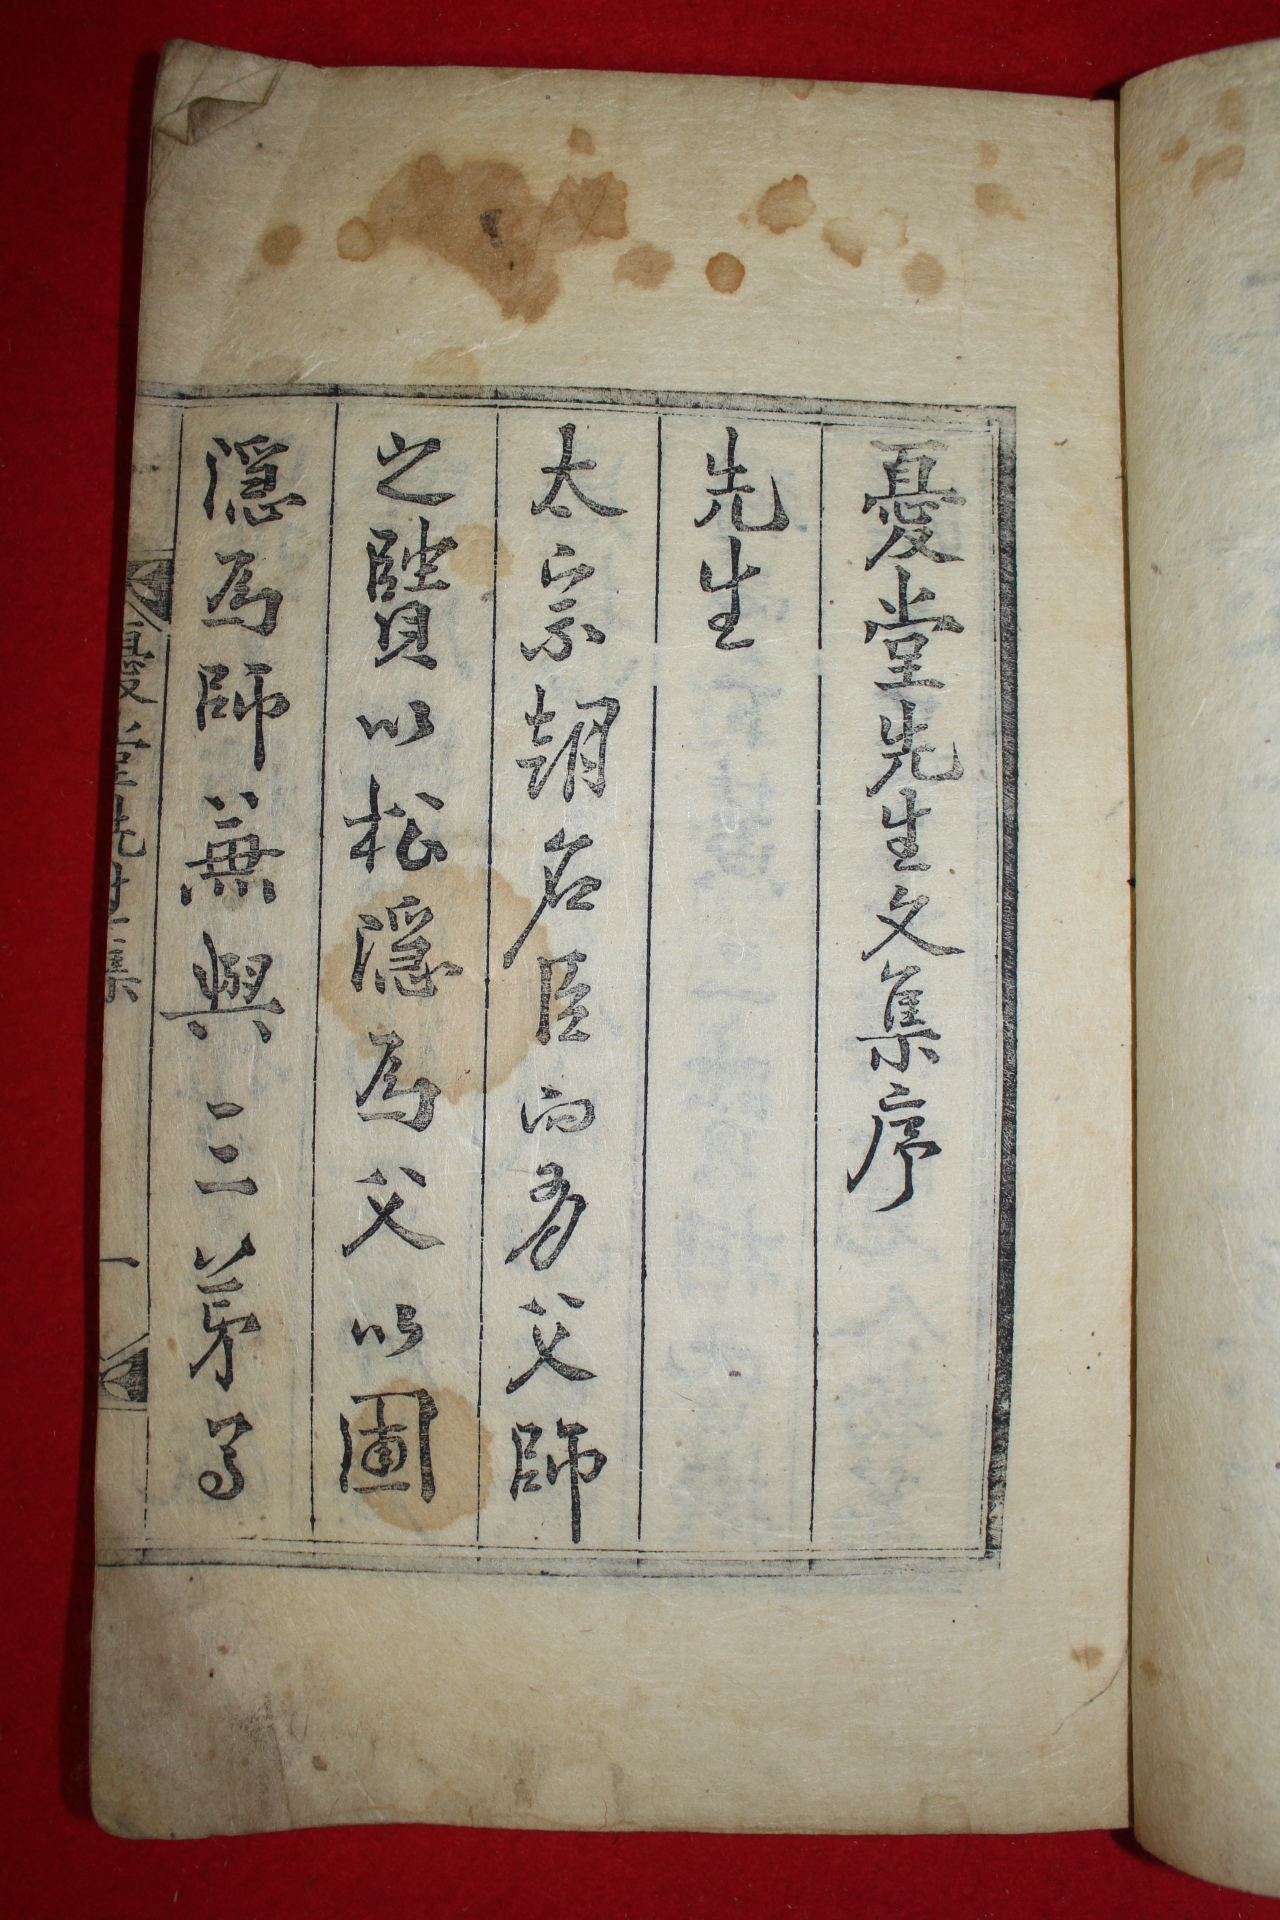 憂堂先生文集序
先生
太宗朝名臣而有父師
之賢以松隱爲父以圃
隱爲師兼與三弟
憂堂先生集
一